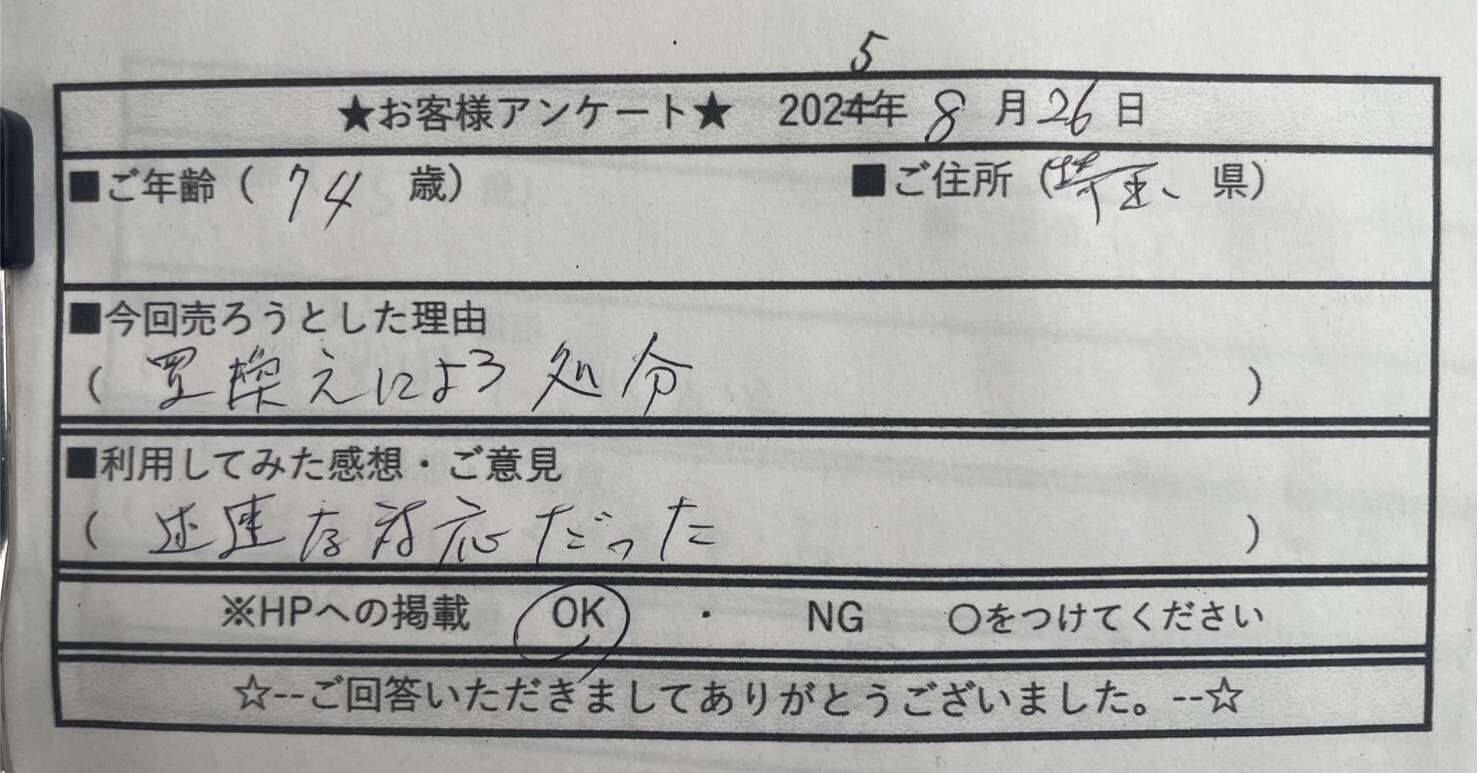 5
★お客様アンケート★ 2024年 8月26日
■ご年齢（ 74 歳） ■ご住所（埼玉 県）
■今回売ろうとした理由
（ 置換えによる処分 ）
■利用してみた感想・ご意見
（ 迅速な対応だった ）
※HPへの掲載 OK ・ NG 〇をつけてください
☆--ご回答いただきましてありがとうございました。--☆